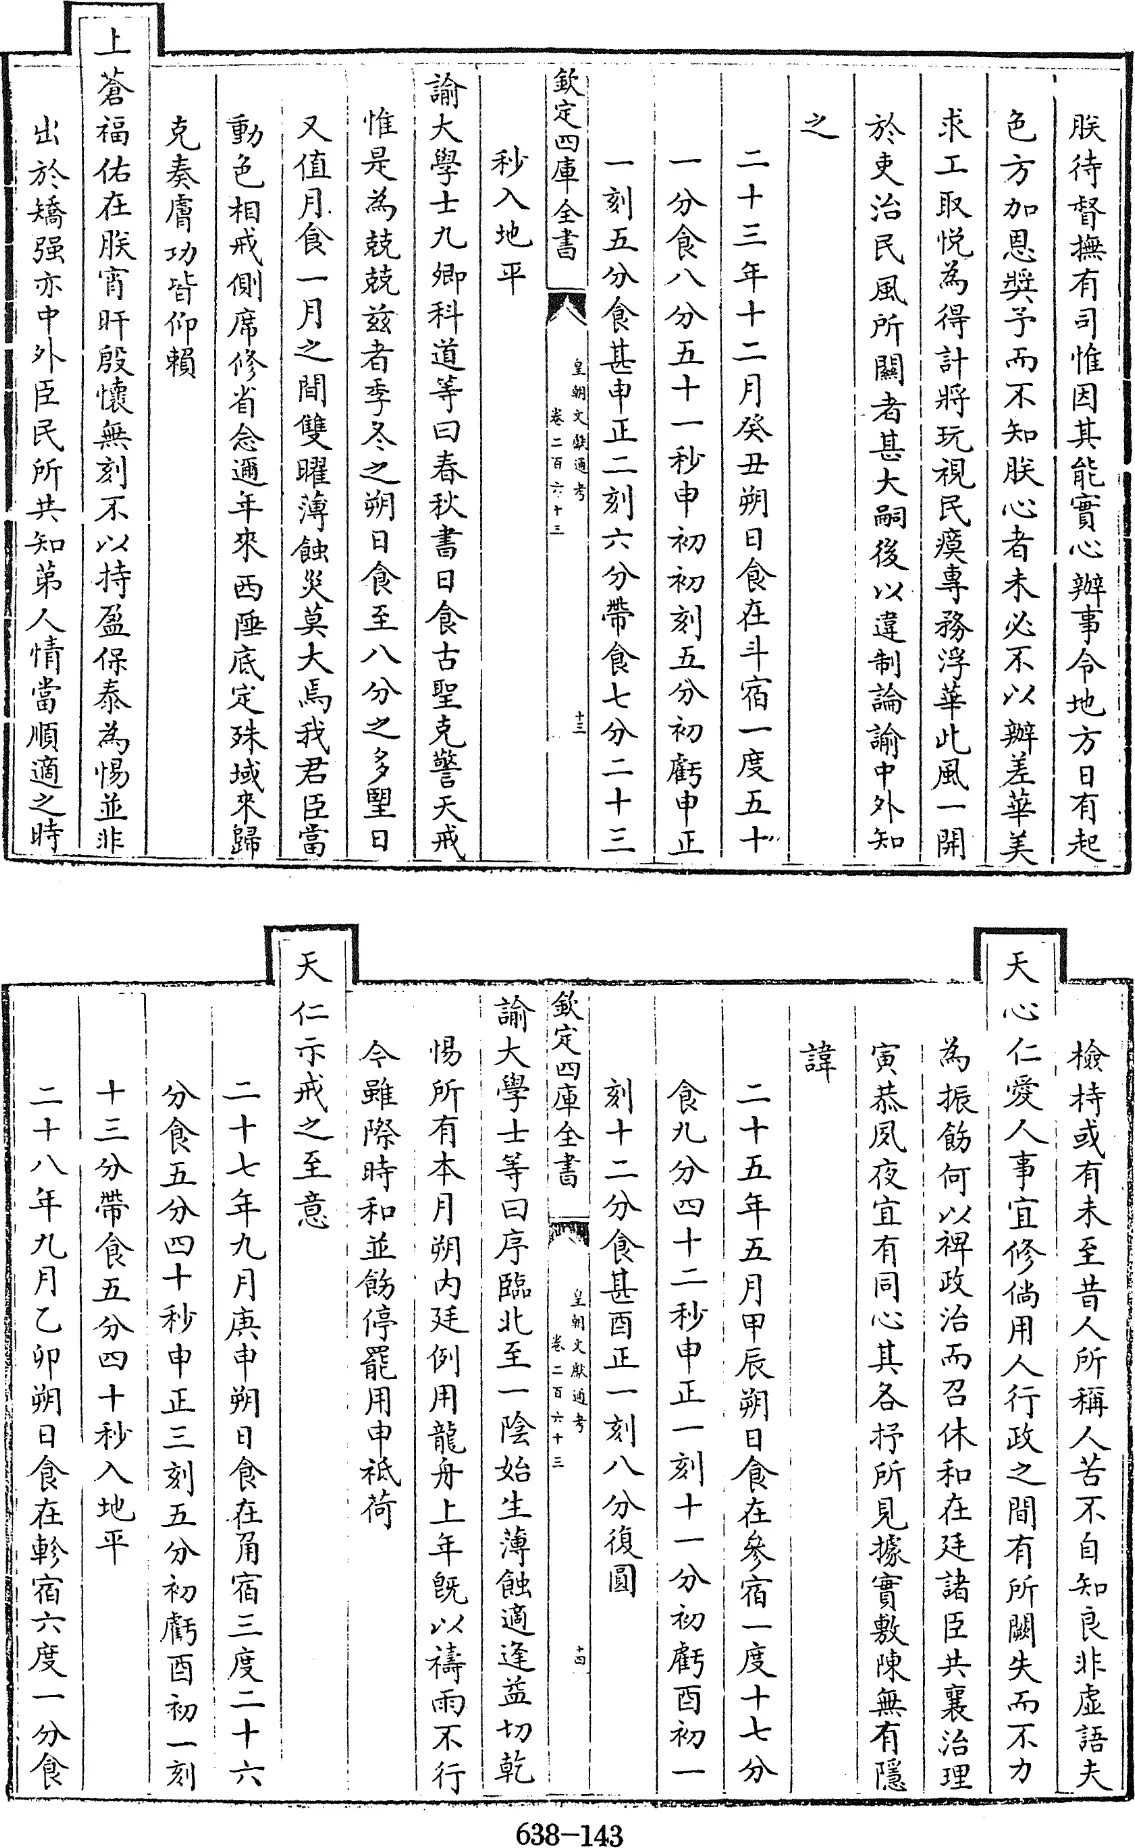 朕待督撫有司惟因其能實心辦事令地方日有起
色方加恩奬予而不知朕心者未必不以辦差華美
求工取悅為得計將玩視民瘼專務浮華此風一開
於吏治民風所關者甚大嗣後以違制論諭中外知
之
二十三年十二月癸丑朔日食在斗宿一度五十
一分食八分五十一秒申初初刻五分初虧申正
一刻五分食甚申正二刻六分帶食七分二十三
欽定四庫全書
皇朝文獻通考
卷二百六十三
十三
秒入地平
諭大學士九卿科道等曰春秋書日食古聖克警天戒
惟是為兢兢兹者季冬之朔日食至八分之多朢日
又值月食一月之間雙曜薄蝕災莫大焉我君臣當
動色相戒側席修省念邇年來西陲底定殊域來歸
克奏膚功皆仰賴
上蒼福佑在朕宵旰殷懷無刻不以持盈保泰為惕並非
出於矯强亦中外臣民所共知第人情當順適之時
檢持或有未至昔人所稱人苦不自知良非虛語夫
天心仁愛人事宜修倘用人行政之間有所闕失而不力
為振飭何以裨政治而召休和在廷諸臣共襄治理
寅恭夙夜宜有同心其各抒所見據實敷陳無有隱
諱
二十五年五月甲辰朔日食在參宿一度十七分
食九分四十二秒申正一刻十一分初虧酉初一
刻十二分食甚酉正一刻八分復圓
欽定四庫全書
皇朝文獻通考
卷二百六十三
十四
諭大學士等曰序臨北至一陰始生薄蝕適逢益切乾
惕所有本月朔内廷例用龍舟上年旣以禱雨不行
今雖際時和並飭停罷用申祗荷
天仁示戒之至意
二十七年九月庚申朔日食在角宿三度二十六
分食五分四十秒申正三刻五分初虧酉初一刻
十三分帶食五分四十秒入地平
二十八年九月乙卯朔日食在軫宿六度一分食
638-143